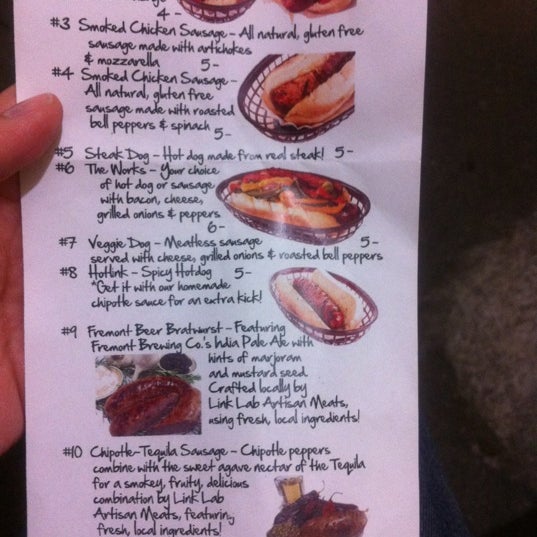 4-
#3 Smoked Chicken Sausage - All natural, gluten free
sausage made with artichokes
& mozzarella 5-
#4 Smoked Chicken Sausage -
All natural, gluten free
sausage made with roasted
bell peppers & spinach
5-
#5 Steak Dog - Hot dog made from real steak! 5-
#6 The Works - Your choice
of hot dog or sausage
with bacon, cheese,
grilled onions & peppers
6-
#7 Veggie Dog - Meatless sausage 5-
served with cheese, grilled onions & roasted bell peppers
#8 Hotlink - Spicy Hotdog 5-
*Get it with our homemade
chipotle sauce for an extra kick!
#9 Fremont Beer Bratwurst - Featuring
Fremont Brewing Co.'s India Pale Ale with
hints of marjoram
and mustard seed.
Crafted locally by
Link Lab Artisan Meats,
using fresh, local ingredients!
#10 Chipotle-Tequila Sausage - Chipotle peppers
combine with the sweet agave nectar of the Tequila
for a smokey, fruity, delicious
combination by Link Lab
Artisan Meats, featuring
fresh, local ingredients!